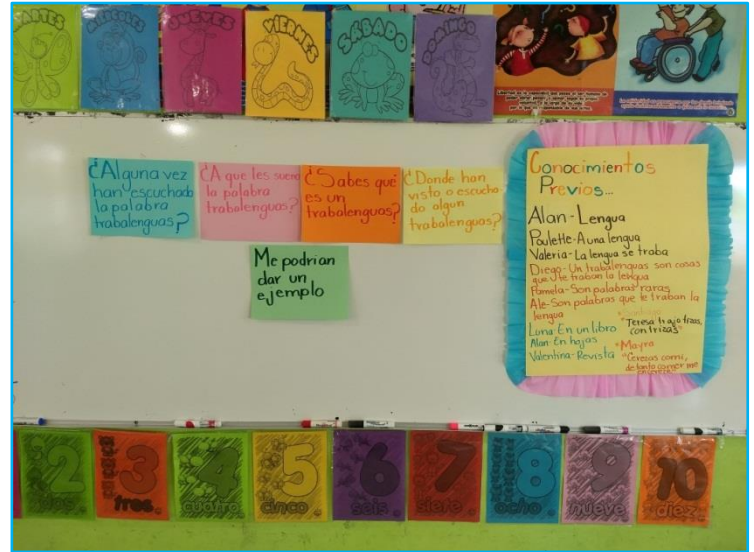 MARTES
MIERCOLES
JUEVES
VIERNES
SÁBADO
DOMINGO
¿Alguna vez
han escuchado
la palabra
trabalenguas?
¿A que les suena
la palabra
trabalenguas?
¿Sabes qué
es un
trabalenguas?
¿Donde han
visto o escucha-
do algun
trabalenguas?
Me podrian
dar un
ejemplo
Conocimientos
Previos...
Alan-Lengua
Poulette-A una lengua
Valeria-La lengua se traba
Diego-Un trabalenguas son cosas
que te traban la lengua
Pamela-Son palabras raras
Ale-Son palabras que te traban la
lengua
Luna-En un libro
Alan-En hojas
Valentina-Revista
*Santiago
"Teresa trajo tizas,
*Mayra
"Cerezas comi,
de tanto comer me
2
dos
3
tres
4
cuatro
5
cinco
6
seis
7
siete
8
ocho
9
nueve
10
diez